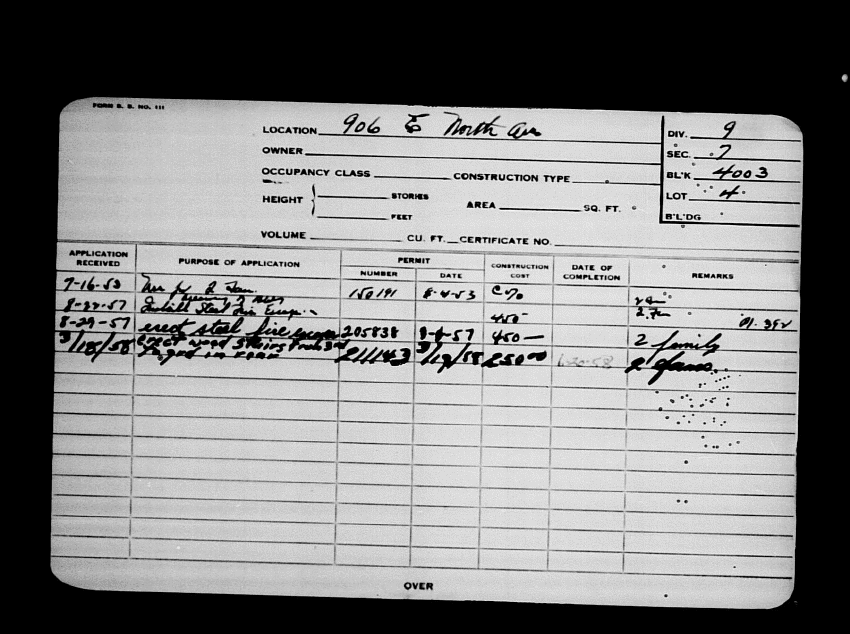 FORM B. B. NO. 111
LOCATION 906 E North Ave
DIV. 9
OWNER
SEC. 7
OCCUPANCY CLASS CONSTRUCTION TYPE
BL'K 4003
HEIGHT STORIES
FEET
AREA SQ. FT.
LOT 4
B'L'DG
VOLUME CU. FT. CERTIFICATE NO.
APPLICATION RECEIVED PURPOSE OF APPLICATION PERMIT CONSTRUCTION COST DATE OF COMPLETION REMARKS
NUMBER DATE
7-16-53 2 Fam. 150191 8-4-53
8-22-57 Install Steel Fire Escape 450- 2 Fam
8-29-57 erect steel fire escape 205838 9-4-57 450- 2 family
3/18/58 erect wood stairs from 3rd 211143 3/19/58 250 00 2 fams.
in rear
OVER